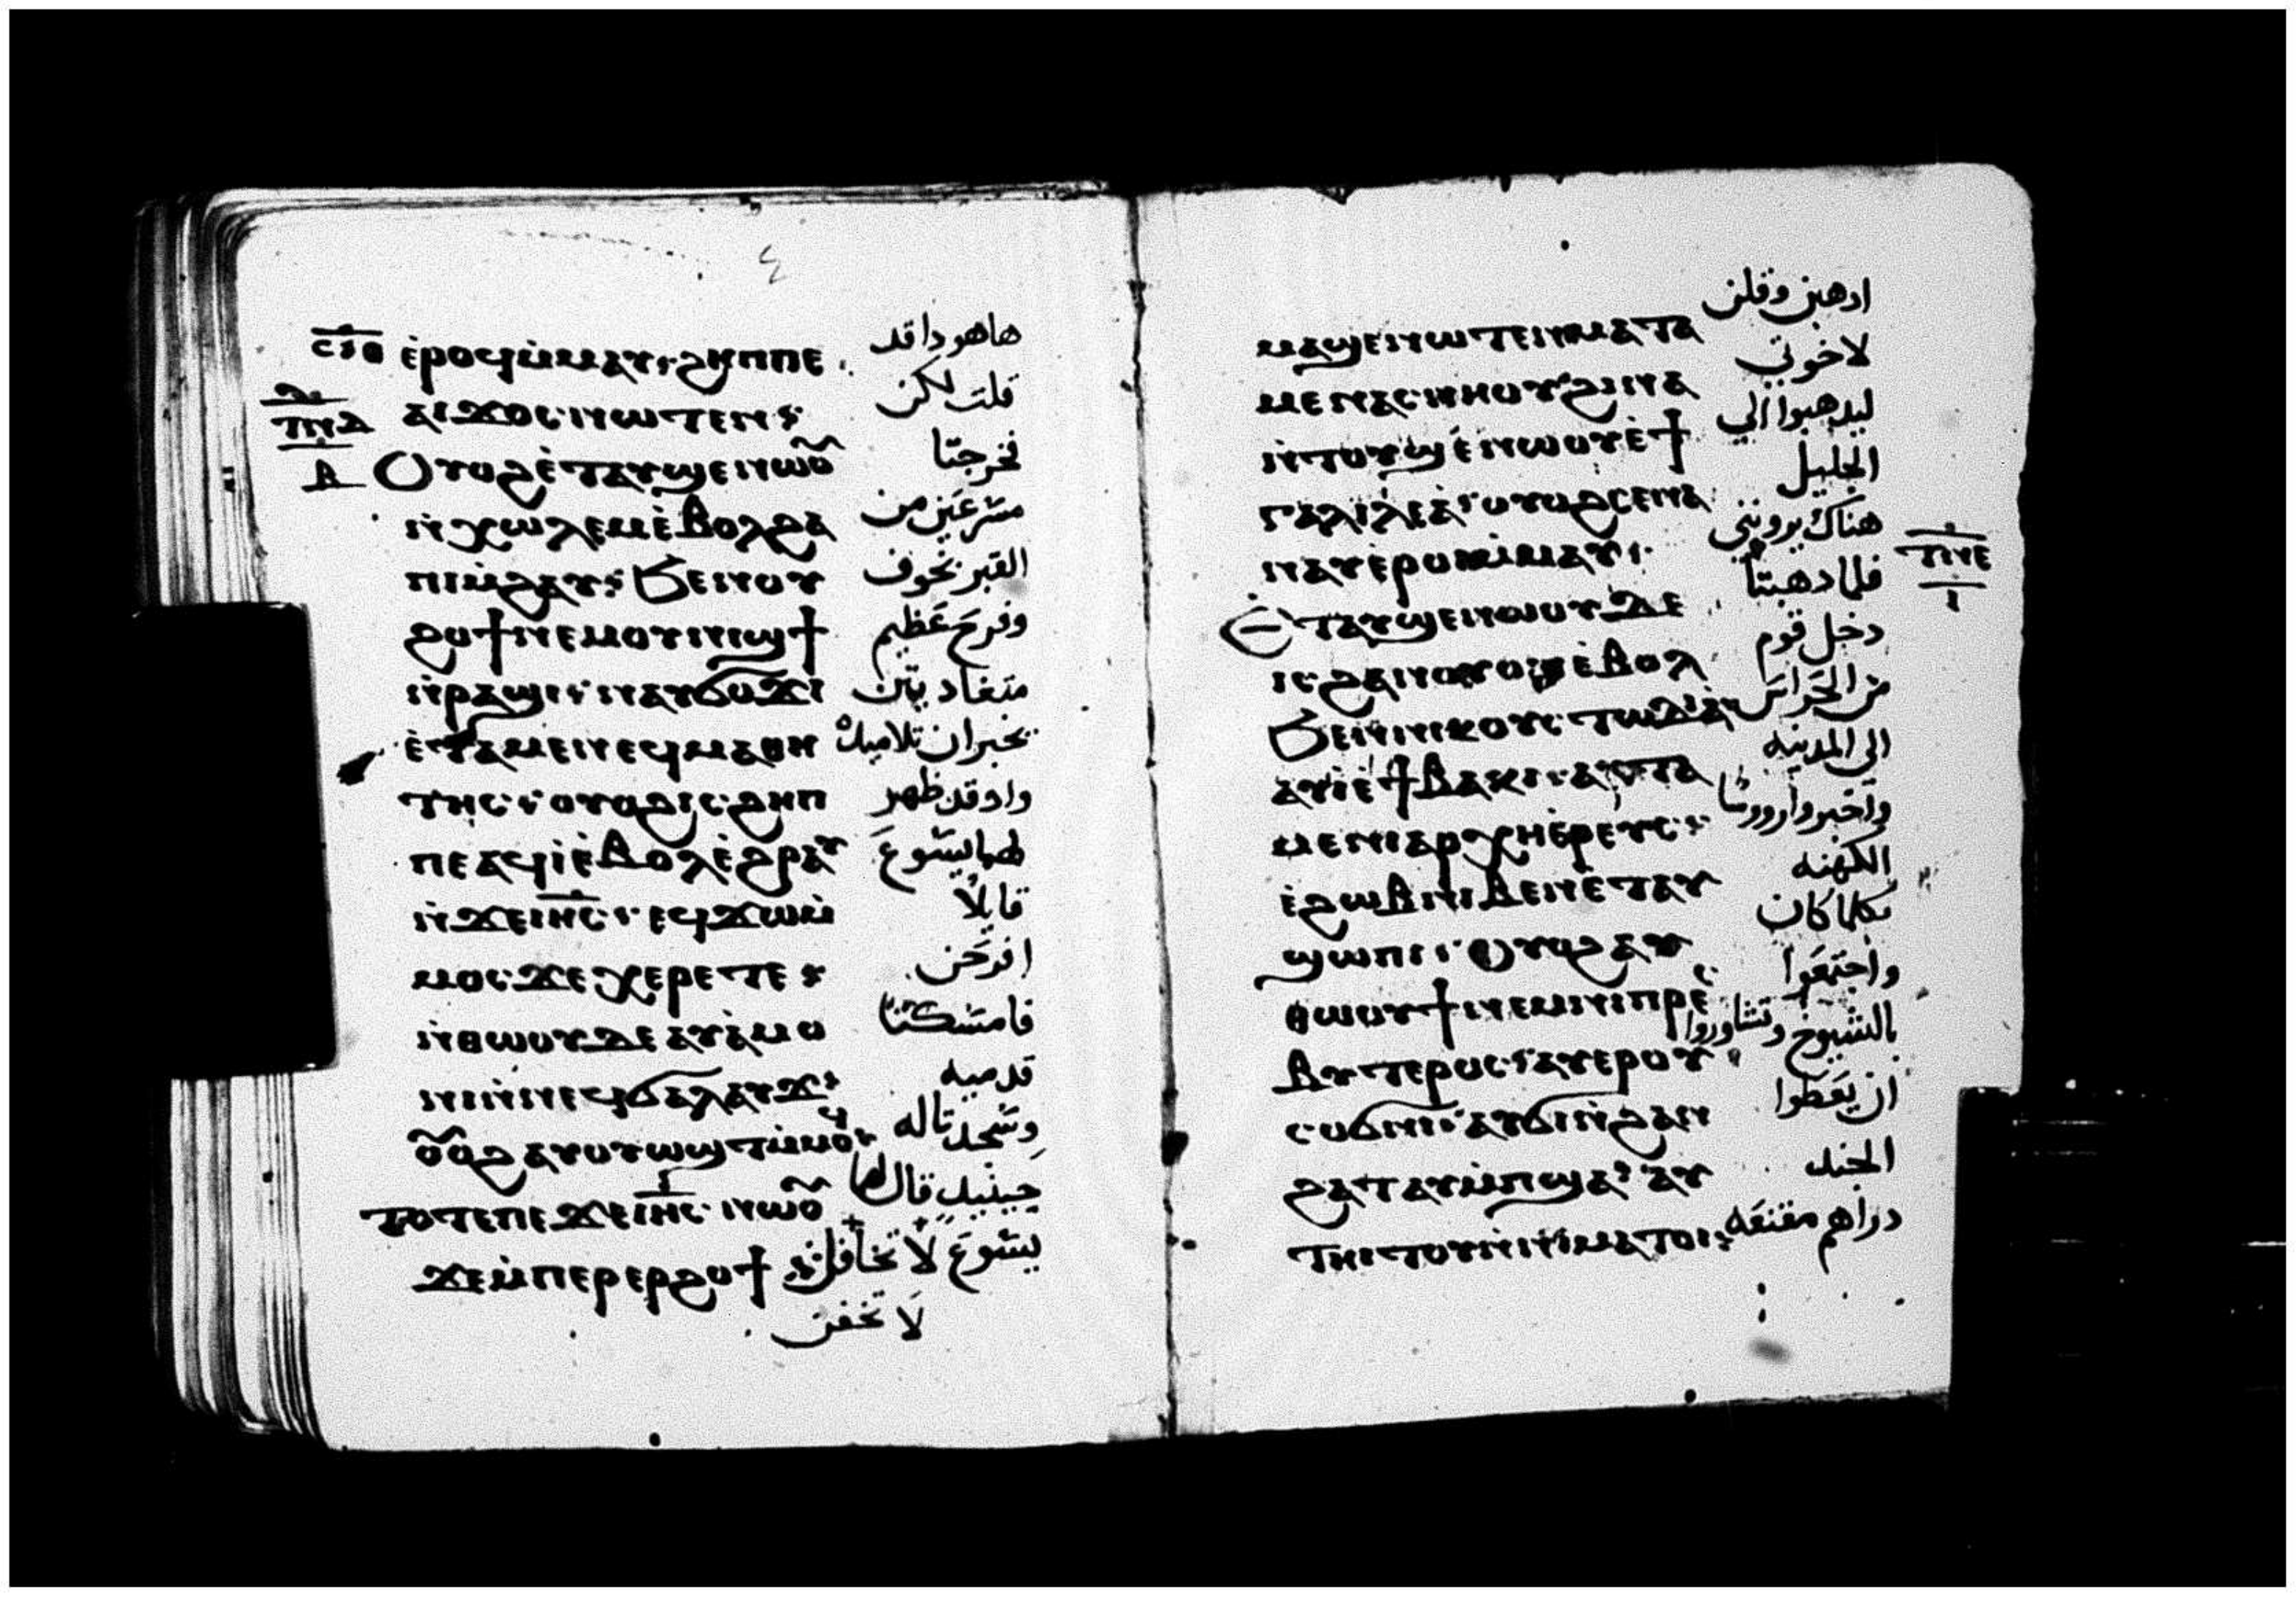 ⲥⲓⲑ ⲉ̀ⲣⲟϥⲙ̀ⲙⲁⲩ⸱ ϩⲏⲡⲡⲉ هاهودا قد
ⲧⲛⲇ ⲁⲓϫⲟⲥ⸱ⲛⲱⲧⲉⲛ⸱ قلت لكن
ⲃ ⲟⲩⲟϩⲉ̀ⲧⲁⲩϣⲉⲛⲱⲟ̅ فخرجتا
ⲛ̀ⲭⲱⲗⲉⲙⲉ̀ⲃⲟⲗϩⲁ مسرعتين من
ⲡⲓⲙ̀ϩⲁⲩ⸱ ϧⲉⲛⲟⲩ القبر بخوف
ϩⲟϯⲛⲉⲙⲟⲩⲛⲓϣϯ وفرح عظيم
ⲛ̀ⲣⲁϣⲓ⸱ ⲛⲁⲩϭⲟϫⲓ
ⲉ̀ⲧⲁⲙⲉⲛⲉϥⲙⲁⲑⲏ يخبران تلاميده
ⲧⲏⲥ⸱ ⲟⲩⲟϩⲓⲥ⸱ϩⲏⲡ وادقد ظهر
ⲡⲉⲁϥⲓ̀ⲉ̀ⲃⲟⲗⲉ̀ϩⲣⲁⲩ لهما يسوع
ⲛ̀ϫⲉⲓⲏⲥ⸱ ⲉϥϫⲱⲙ̀ قايلا
ⲙⲟⲥ⸱ϫⲉⲭⲉⲣⲉⲧⲉ افرحن
ⲛ̀ⲑⲱⲟⲩⲇⲉⲁⲩⲁ̀ⲙⲟ فامسكتا
ⲛⲓⲛ̀ⲛⲉϥϭⲁⲗⲁⲩϫ⸱ قدميه
ⲟ̅ⲟϩⲁⲩⲟⲩⲱϣⲧⲙ̀ⲙⲟϥ وسجدتا له
ⲧⲟⲧⲉⲡⲉϫⲉⲓⲏⲥ⸱ⲛⲱⲟ̅ حينيد قال لهما
ϫⲉⲙ̀ⲡⲉⲣⲉⲣϩⲟϯ يسوع لا تخافن
لا تخفن
ادهبن وقلن
ⲙⲁϣⲉⲛⲱⲧⲉⲛⲙⲁⲧⲁ لاخوتي
ⲙⲉⲛⲁⲥⲛⲏⲟⲩ ϩⲓⲛⲁ ليدهبوا الي
ⲛ̀ⲧⲟⲩϣⲉ̀ⲛⲱⲟⲩⲉ̀ϯ الجليل
ⲅⲁⲗⲓⲗⲉⲁ̀⸱ⲟⲩⲟϩⲥⲉⲛⲁ هناك يرونني
ⲛⲁⲩⲉ̀ⲣⲟⲓⲙ̀ⲙⲁⲩ⸱ فلما دهبتا ⲧⲛⲉ
ⲉⲧⲁⲩϣⲉⲛⲱⲟⲩⲇⲉ دخل قوم ⲓ
ⲓⲥ⸱ϩⲁⲛⲟⲩⲟⲛⲉ̀ⲃⲟⲗ من الحراس
ϧⲉⲛⲛⲓⲕⲟⲩⲥ⸱ⲧⲱⲇⲓⲁ̀ الي المدينه
ⲁⲩⲓ̀ⲉ̀ϯⲃⲁⲕⲓ⸱ⲁⲩⲧⲁ واخبروا رووسا
ⲙⲉⲛⲓⲁⲣⲭⲏⲉ̀ⲣⲉⲩⲥ⸱ الكهنه
ⲉ̀ϩⲱⲃⲛⲓⲃⲉⲛⲉ̀ⲧⲁⲩ بكلما كان
ϣⲱⲡⲓ⸱ ⲟⲩⲟϩⲁⲩ واجتمعوا
ⲑⲱⲟⲩϯⲛⲉⲙⲛⲓⲡⲣⲉⲥ بالشيوخ وتشاوروا
ⲃⲩⲧⲉⲣⲟⲥ⸱ⲁⲩⲉⲣⲟⲩ ان يعطوا
ⲥⲟϭⲛⲓ⸱ⲁⲩϭⲓⲛ̀ϩⲁⲛ الجند
ϩⲁⲧⲁⲩⲙ̀ⲡϣⲁ⸱ⲁⲩ دراهم مقنعه
ⲧⲏⲓⲧⲟⲩⲛ̀ⲛⲓⲙⲁⲧⲟⲓ⸱